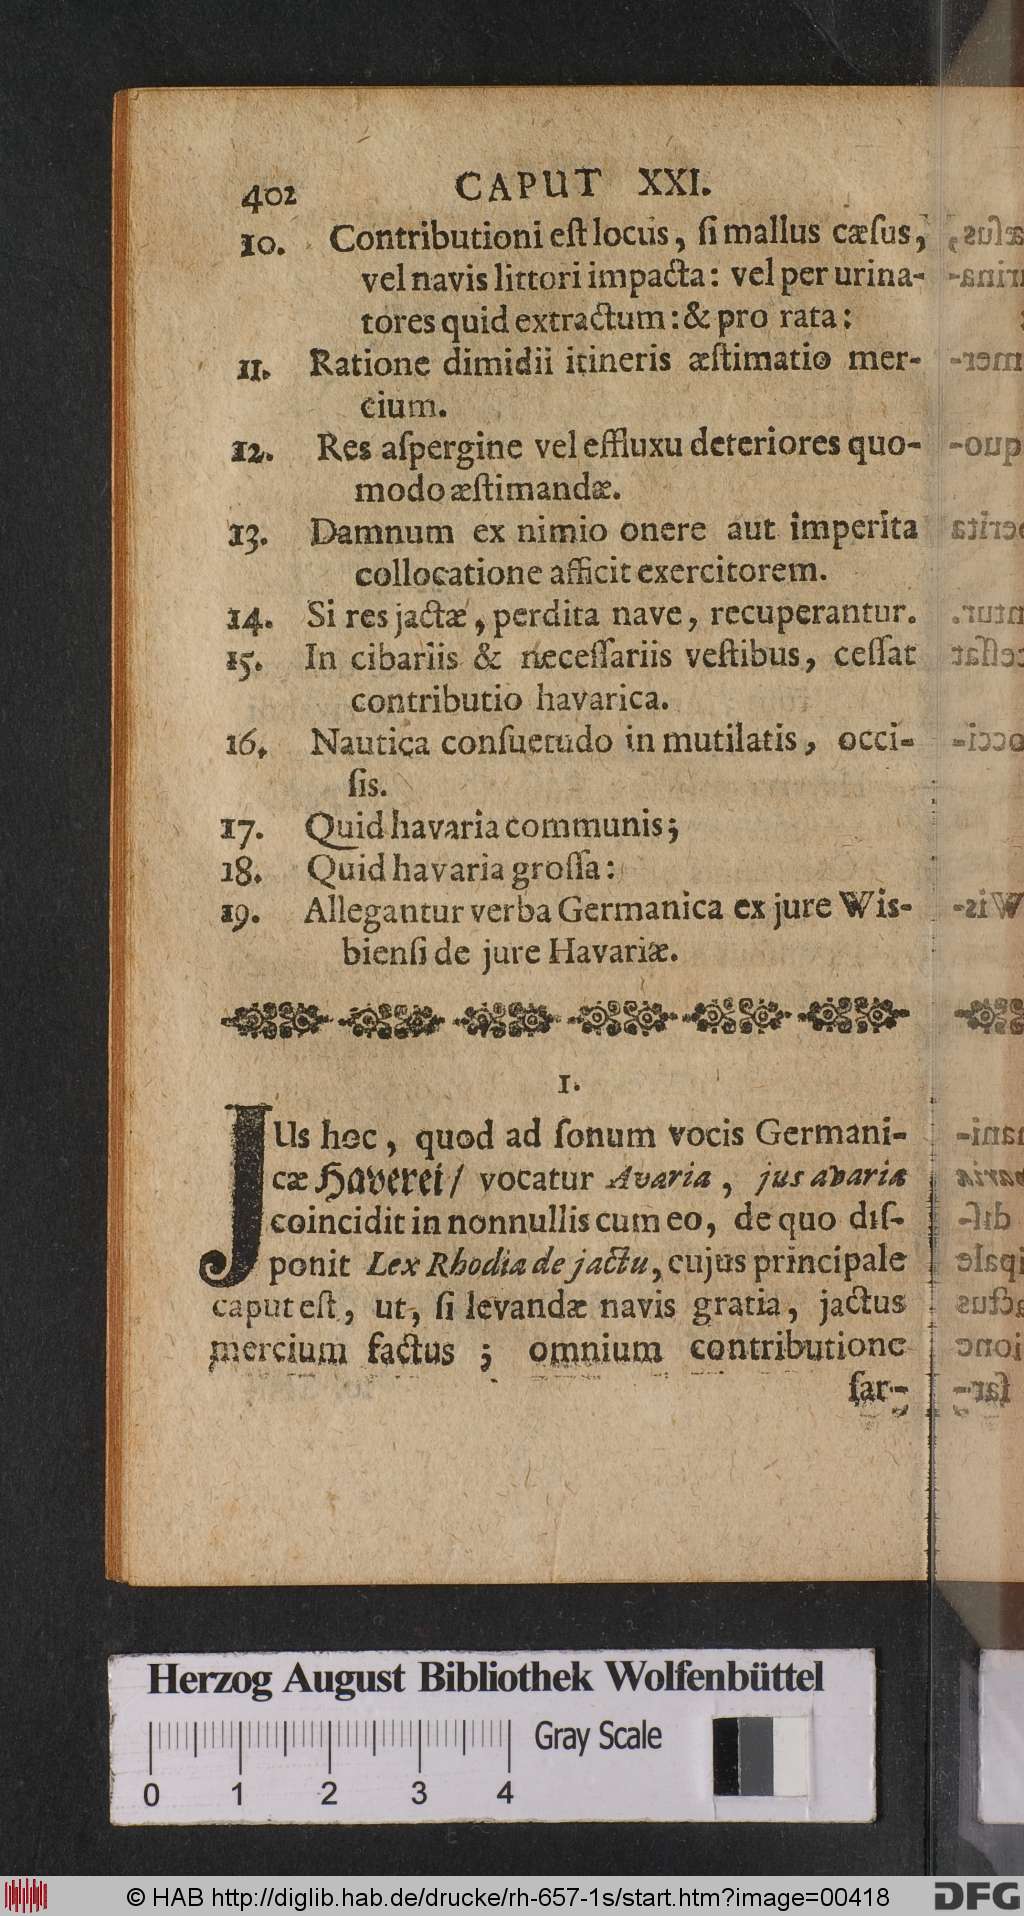 402 CAPUT XXI.
10. Contributioni eſt locus, ſi mallus cæſus,
vel navis littori impacta: vel per urina-
tores quid extractum: & pro rata:
11. Ratione dimidii itineris æſtimatio mer-
cium.
12. Res aſpergine vel effluxu deteriores quo-
modo æſtimandæ.
13. Damnum ex nimio onere aut imperita
collocatione afficit exercitorem.
14. Si res jactæ, perdita nave, recuperantur.
15. In cibariis & neceſſariis veſtibus, ceſſat
contributio havarica.
16. Nautica conſuetudo in mutilatis, occi-
ſis.
17. Quid havaria communis;
18. Quid havaria groſſa:
19. Allegantur verba Germanica ex jure Wis-
bienſi de jure Havariæ.
1.
JUs hoc, quod ad ſonum vocis Germani-
cæ Haverei/ vocatur Avaria, jus avariæ
coincidit in nonnullis cum eo, de quo diſ-
ponit Lex Rhodia de jactu, cujus principale
caput eſt, ut, ſi levandæ navis gratia, jactus
mercium factus; omnium contributione
ſar-
Herzog August Bibliothek Wolfenbüttel
Gray Scale
0 1 2 3 4
© HAB http://diglib.hab.de/drucke/rh-657-1s/start.htm?image=00418
DFG